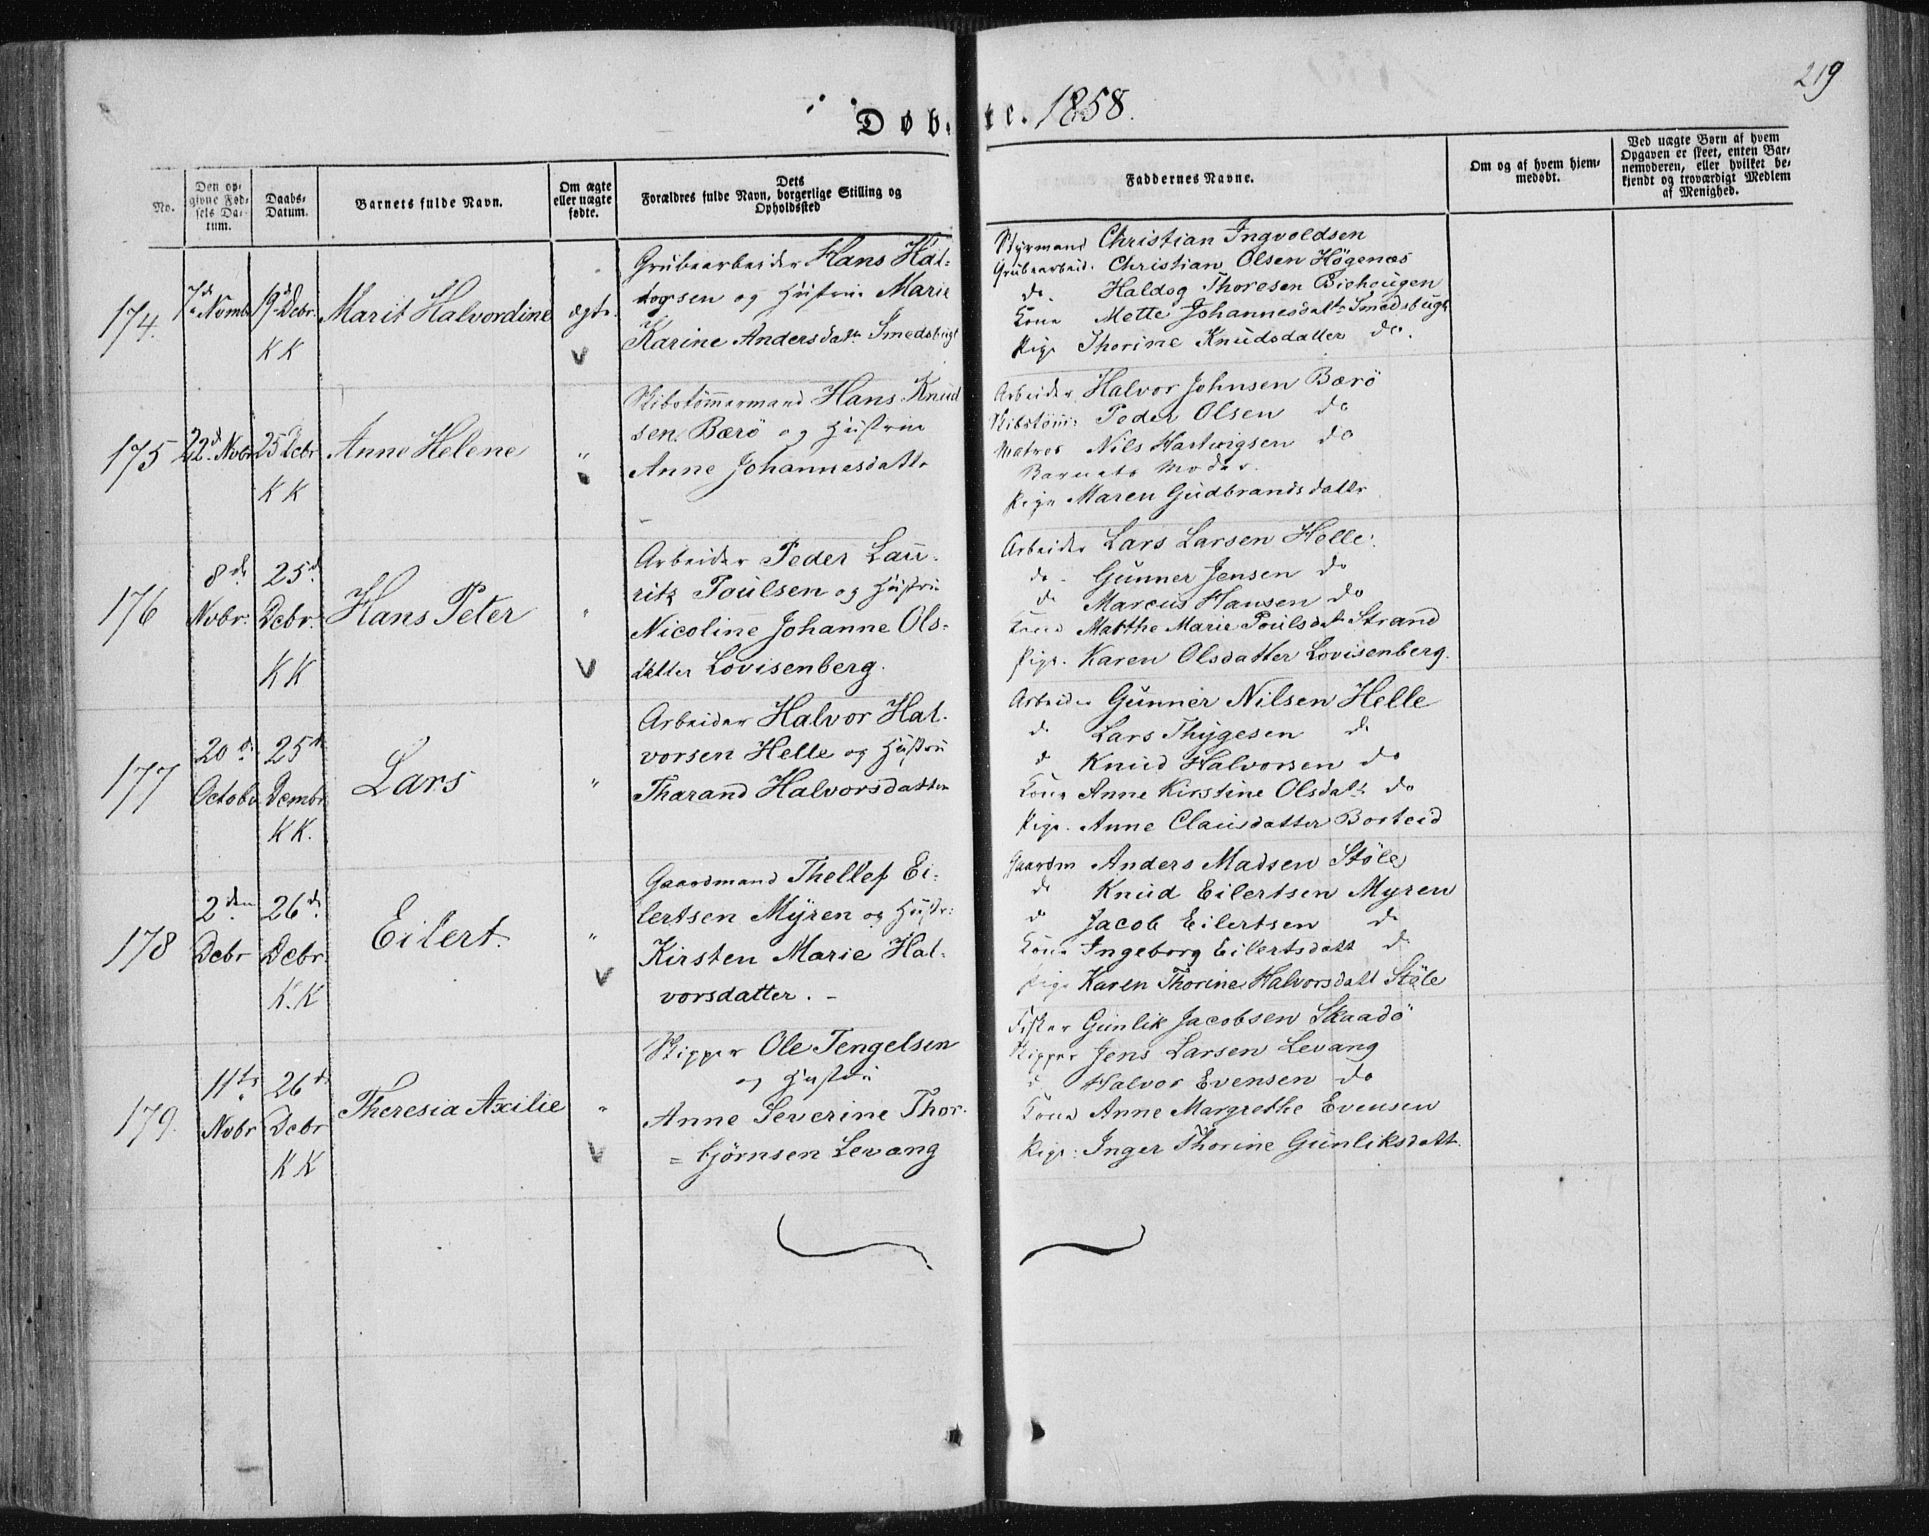 219
Døbte. 1858.
No.
Den opgivne Fødsels Datum.
Daabs-Datum.
Barnets fulde Navn.
Om ægte eller uægte fødte.
Dets Forældres fulde Navn, borgerlige Stilling og Opholdssted
Faddernes Navne.
Om og af hvem hjemmedøbt.
Ved uægte Børn af hvem Opgaven er skeet, enten Barnemoderen, eller hvilket bekjendt og troværdigt Medlem af Menighed.
174.
7de Novmb
19d Debr.
KK
Marit Halvordine
ægte.
V
Grubearbeider Hans Hal-
dogsen og Hustrue Marie
Karine Andersdatt. Smedsbugt
Styrmand Christian Ingvoldsen
Grubearbeid. Christian Olsen Högenæs
do. Haldog Thoresen Biehougen
Kone Mette Johannesdatt. Smedsbugt
Pige Thorine Knudsdatter do.
175
22d. Novbr
25 Debr
KK
Anne Helene
"
Skibstömmermand Hans Knud
sen Bærö og Hustrue
Anne Johannesdattr
Arbeider Halvor Johnsen Bærö
Skibstöm: Peder Olsen do
Matros Nils Hartvigsen do
Barnets Moder.
Pige Maren Gudbrandsdattr
176
8de
Novbr:
25d.
Debr.
KK
Hans Peter
"
V
Arbeider Peder Lau-
ritz Poulsen og Hustru
Nicoline Johanne Ols-
datter Lovisenberg.
Arbeider Lars Larsen Helle.
do. Gunner Jensen do
d Marcus Hansen do
Kone Marthe Marie Poulsdat Strand
Pige. Karen Olsdatter Lovisenberg.
177
20d.
Octobr
25d
Dembr
KK.
Lars
"
Arbeider Halvor Hal-
vorsen Helle og Hustru
Tharand Halvorsdatter
Arbeider Gunner Nilsen Helle
d Lars Thygesen d
d Knud Halvorsen do
Kone Anne Kirstine Olsdatt. do
Pige. Anne Clausdatter Borteid
178
2den
Debr
26d.
Debr.
K.K
Eilert.
"
V
Gaardmand Thellef Ei-
lertsen Myren og Hustr:
Kirsten Marie Hal-
vorsdatter. -
Gaardm Anders Madsen Stöle
d Knud Eilertsen Myren
d Jacob Eilertsen d
Kone Ingeborg Eilertsdatt d
Pige Karen Thorine Halvorsdatt Stöle
179.
11te
Novbr
26d
Debr
KK
Theresia Axilie
"
V
Skipper Ole Tengelsen
og Hustru
Anne Severine Thor-
= bjørnsen Levang
Fisker Gunlik Jacobsen Skaadö
Skipper Jens Larsen Levang
d Halvor Evensen do
Kone Anne Margrethe Evensen
Pige: Inger Thorine Gunliksdatt.